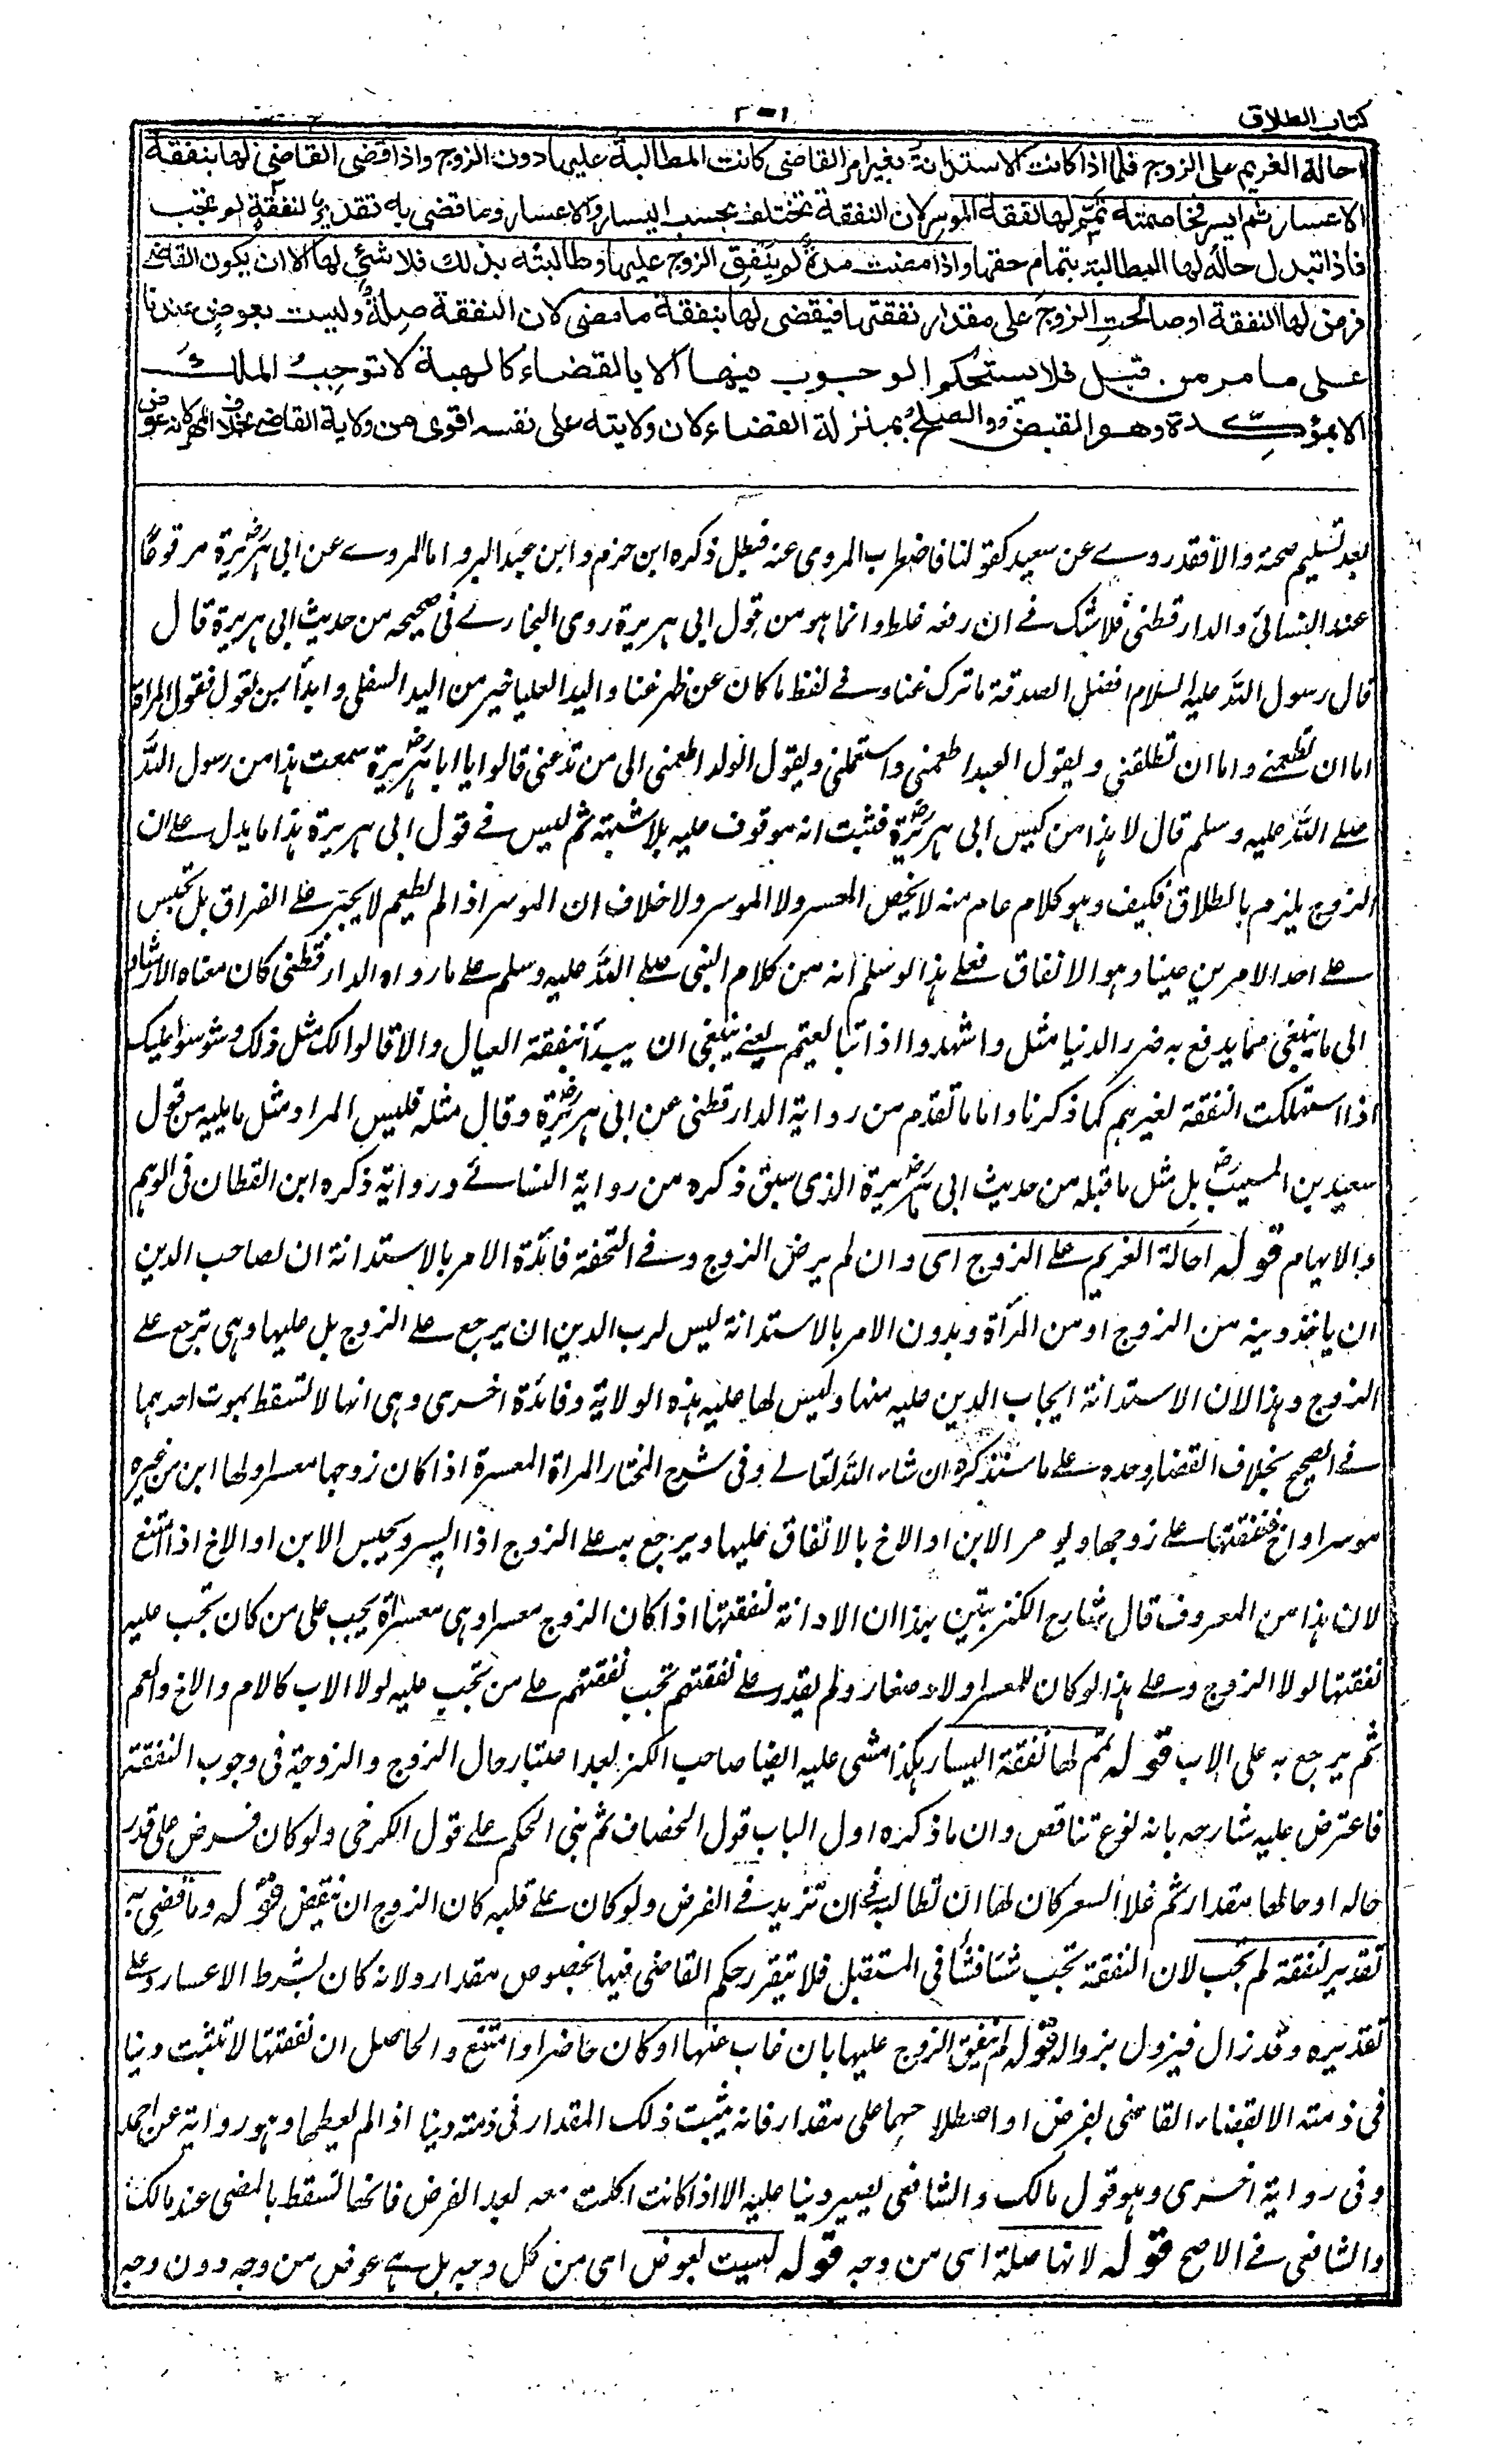 كتاب الطلاق
٢٠١
احالة الغريم على الزوج فاما اذا كانت الاستدانة بغير امر القاضى كانت المطالبة عليها دون الزوج واذا قضى القاضى لها بنفقة
الاعسار ثم ايسر فخاصمته تمم لها نفقة الموسر لان النفقة تختلف بحسب اليسار والاعسار وما قضى به تقدير لنفقة لم تجب
فاذا تبدل حاله لها المطالبة بتمام حقها واذا مضت مدة لم ينفق الزوج عليها وطالبته بذلك فلا شئ لها الا ان يكون القاضى
فرض لها النفقة او صالحت الزوج على مقدار نفقتها فيقضى لها بنفقة ما مضى لان النفقة صلة وليست بعوض عندنا
على ما مر من قبل فلا يستحكم الوجوب فيها الا بالقضاء كالهبة لا توجب الملك
الا بمؤكدة وهو القبض والصلح بمنزلة القضاء لان ولايته على نفسه اقوى من ولاية القاضى بخلاف المهر لانه عوض
بعد تسليم صحة والا فقد روے عن سعيد كقولنا فاضطرب المروى عنه فبطل ذكره ابن حزم وابن عبد البر واما المروے عن ابى هريرة مرفوعا
عند النسائى والدارقطنى فلا شك فے ان رفعه غلط وانما هو من قول ابى هريرة روى البخارے فى صحيحه من حديث ابى هريرة قال
قال رسول الله عليه السلام افضل الصدقة ما ترك غنا وفے لفظ ما كان عن ظهر غنا واليد العليا خير من اليد السفلى وابدأ بمن تعول تقول المرأة
اما ان تطعمنے واما ان تطلقنى ويقول العبد اطعمنى واستعملنى ويقول الولد اطعمنى الى من تدعنى قالوا يا ابا هريرة سمعت هذا من رسول الله
صلے الله عليه وسلم قال لا هذا من كيس ابى هريرة فثبت انه موقوف عليه بلا شبهة ثم ليس فے قول ابى هريرة هذا ما يدل علے ان
الزوج يلزم بالطلاق فكيف وهو كلام عام منه لا يخص المعسر ولا الموسر ولا خلاف ان الموسر اذا لم يطعم لا يجبر علے الفراق بل تحبس
علے احد الامرين عينا وهو الانفاق فعلے هذا لو سلم انه من كلام النبى صلے الله عليه وسلم علے ما رواه الدارقطنى كان معناه الارشاد
الى ما ينبغى مما يدفع به ضرر الدنيا مثل واشهدوا اذا تبايعتم يعنے ينبغى ان يبدأ بنفقة العيال والا قالوا لك مثل ذلك وشوشوا عليك
اذا استهلكت النفقة لغيرهم كما ذكرنا واما ما تقدم من رواية الدارقطنى عن ابى هريرة وقال مثله فليس المراد مثل ما يليه من قول
سعيد بن المسيب بل مثل ما قبله من حديث ابى هريرة الذى سبق ذكره من رواية النسائے ورواية ذكره ابن القطان فى الوهم
والايهام قوله احالة الغريم علے الزوج اى وان لم يرض الزوج وفے التحفة فائدة الامر بالاستدانة ان لصاحب الدين
ان ياخذ دينه من الزوج او من المرأة وبدون الامر بالاستدانة ليس لرب الدين ان يرجع علے الزوج بل عليها وهى ترجع علے
الزوج وهذا لان الاستدانة ايجاب الدين عليه منها وليس لها عليه هذه الولاية وفائدة اخرى وهى انها لا تسقط بموت احدهما
فے الصحيح بخلاف القضاء وحده علے ما ستذكره ان شاء الله تعالے وفى شرح المختار المراة المعسرة اذا كان زوجها معسرا ولها ابن من غيره
موسرا واخ فنفقتها علے زوجها ويومر الابن او الاخ بالانفاق عليها ويرجع به علے الزوج اذا ايسر ويحبس الابن او الاخ اذا امتنع
لان هذا من المعروف قال شارح الكنز يتبين بهذا ان الادانة لنفقتها اذا كان الزوج معسرا وهى معسرة يجب على من كان تجب عليه
نفقتها لولا الزوج وعلے هذا لو كان للمعسر اولاد صغار ولم يقدر علے نفقتهم تجب نفقتهم علے من تجب عليه لولا الاب كالام والاخ والعم
ثم يرجع به على الاب قوله تمم لها نفقة اليسار هكذا مشى عليه ايضا صاحب الكنز بعد اعتبار حال الزوج والزوجة فى وجوب النفقة
فاعترض عليه شارحه بانه نوع تناقض وان ما ذكره اول الباب قول الخصاف ثم بنى الحكم علے قول الكرخى ولو كان فرض على قدر
حاله او حالها بمقدار ثم غلا السعر كان لها ان تطالبه فى ان تزيد فے الفرض ولو كان علے قلبه كان الزوج ان ينقض قوله وما قضى به
تقدير لنفقة لم تجب لان النفقة تجب شئا فشئا فى المستقبل فلا يتقرر حكم القاضى فيها بخصوص مقدار ولانه كان بشرط الاعسار وعلے
تقديره وقد زال فيزول بزواله قوله لم ينفق الزوج عليها بان غاب عنها او كان حاضرا وامتنع والحاصل ان نفقتها لا تثبت دينا
فى ذمته الا بقضاء القاضى بفرض او اصطلاحهما على مقدار فانه يثبت ذلك المقدار فى ذمته دينا اذا لم يعطها وهو رواية عن احمد
وفى رواية اخرى وهو قول مالك والشافعى يصير دينا عليه الا اذا كانت اكلت معه بعد الفرض فانها تسقط بالمضى عند مالك
والشافعى فے الاصح قوله لانها صلة اى من وجه قوله ليست بعوض اى من كل وجه بل هے عوض من وجه دون وجه